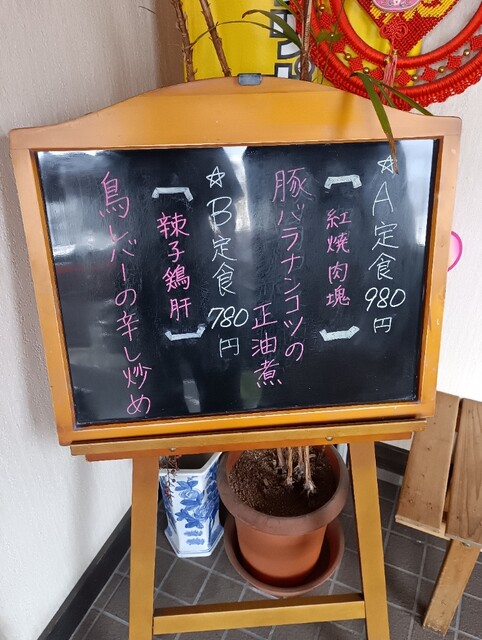 ☆A定食 980円
﹁紅焼肉塊﹂
豚バラナンコツの
正油煮
☆B定食 780円
﹁辣子鶏肝﹂
鳥レバーの辛し炒め